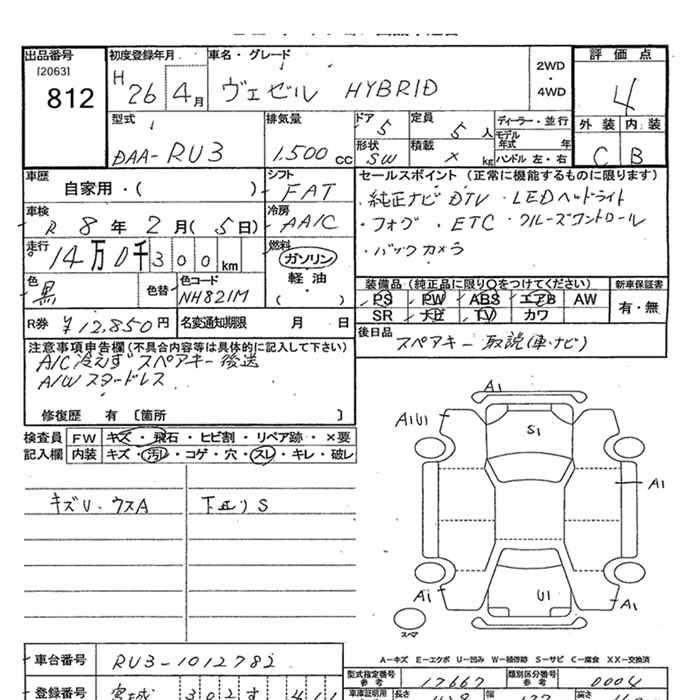 出品番号
[2063]
812
初度登録年月
H 26 4月
車名・グレード
ヴェゼル HYBRID
2WD
・
4WD
評価点
4
外装 内装
C B
型式
DAA-RU3
排気量
1.500 cc
ドア 5
定員 5 人
形状 SW
積載 × kg
ディーラー・並行
モデル年式 年
ハンドル 左・右
車歴
自家用・( )
シフト
FAT
車検
R 8年 2月(5日)
冷房
AAIC
走行
14万0千300km
燃料
ガソリン
軽油
( )
色
黒
色替
色コード
NH821M
R券 ¥12,850円
名変通知期限 月 日
セールスポイント (正常に機能するものに限ります)
・純正ナビ DTV ・LEDヘッドライト
・フォグ ・ETC ・クルーズコントロール
・バックカメラ
装備品 (純正品に限り○をつけてください)
新車保証書
PS PW ABS エアB AW
SR ナビ TV カワ
有・無
後日品
スペアキー 取説(車・ナビ)
注意事項申告欄(不具合内容等は具体的に記入して下さい)
A/C 冷えず スペアキー後送
A/W スタッドレス
修復歴 有 〔箇所 〕
検査員記入欄
FW キズ・飛石・ヒビ割・リペア跡・×要
内装 キズ・汚レ・コゲ・穴・スレ・キレ・破レ
キズU・ウスA
下廻りS
A1
A1U1
S1
A1
A1
U1
A1
スペア
A-キズ E-エクボ U-凹み W-補修跡 S-サビ C-腐食 XX-交換済
車台番号
RU3-1012782
型式指定番号
参考
17667
類別区分番号
参考
0004
登録番号
宮城 302 す
車庫証明用
長さ
幅
高さ